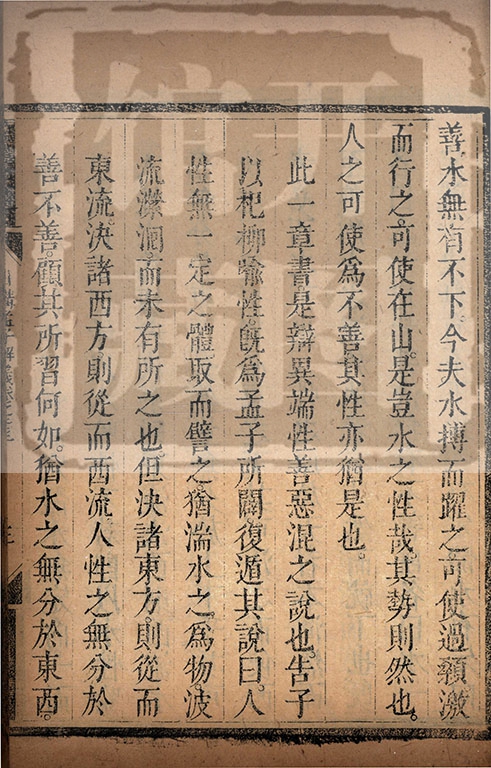 善水無有不下。今夫水搏而躍之可使過顙激
而行之可使在山。是豈水之性哉其勢則然也。
人之可使為不善其性亦猶是也。
此一章書是辯異端性善惡混之說也。告子
以杞柳喻性。旣為孟子所闢復遁其說曰。人
性無一定之體取而譬之猶湍水之。為物波
流瀠洄。而未有所之也。但決諸東方。則從而
東流。決諸西方。則從而西流。人性之無分於
善不善。顧其所習何如。猶水之無分於東西。